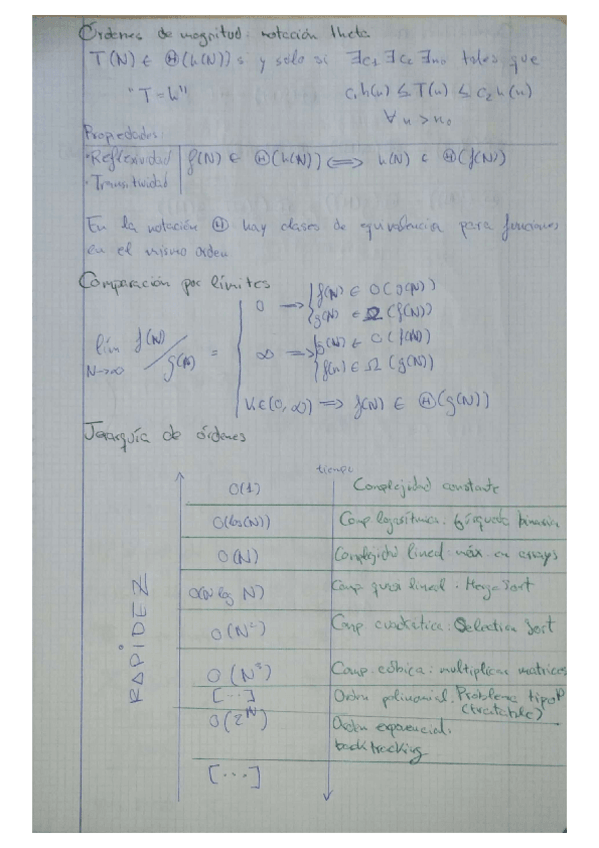 Órdenes de magnitud: notación theta
T(N) ∈ Θ(h(N)) s y sólo si ∃c₁ ∃c₂ ∃n₀ tales que
"T = h" c₁h(n) ≤ T(n) ≤ c₂h(n)
∀n > n₀
Propiedades:
· Reflexividad f(N) ∈ Θ(h(N)) ⟺ h(N) ∈ Θ(f(N))
· Transitividad
En la notación Θ hay clases de equivalencia para funciones
en el mismo orden
Comparación por límites
0 ⟹ { f(N) ∈ O(g(N))
g(N) ∈ Ω(f(N))
lím N→∞ f(N)/g(N) =
∞ ⟹ { g(N) ∈ O(f(N))
f(N) ∈ Ω(g(N))
K ∈ (0, ∞) ⟹ f(N) ∈ Θ(g(N))
Jerarquía de órdenes
tiempo
RAPIDEZ
O(1) Complejidad constante
O(log(N)) Comp logarítmica. búsqueda binaria
O(N) Complejidad lineal: máx en arrays
O(N log N) Comp quasi lineal. MergeSort
O(N²) Comp cuadrática: Selection Sort
O(N³) Comp cúbica: multiplicar matrices
[...] Orden polinomial. Problema tipo P
(tratable)
O(2ᴺ) Orden exponencial:
backtracking
[...]